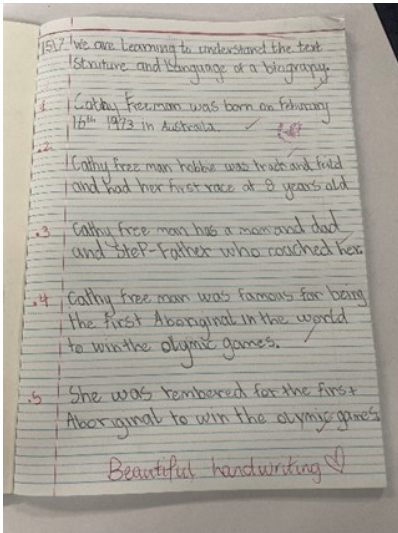 15/7 We are Learning to understand the text
Struture and Language of a biograpy.
.1 Cathy Freeman was born on Feburary
16th 1973 in Australia.
.2
Cathy free man hobbie was track and feild
and had her first race at 8 years old
.3 Cathy free man has a mom and dad
and step-Father who coached her.
.4 Cathy free man was famous for being
the first Aboriginal in the world
to win the olymic games.
.5 She was rembered for the first
Aboriginal to win the olymic games
Beautiful handwriting